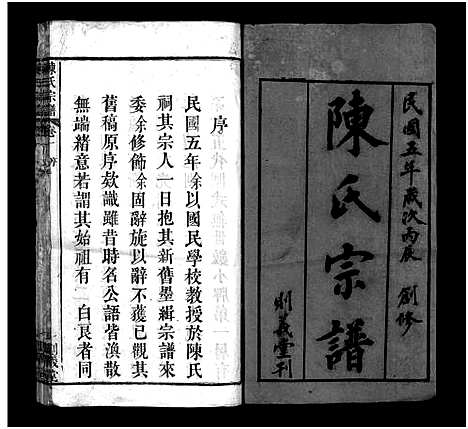 民國五年歲次丙辰 創修
陳氏宗譜
義堂刊
序
民國五年余以國民學校教授於陳氏
祠其宗人一日抱其新舊墨緝宗譜來
委余修飾余固辭旋以辭不獲已觀其
舊稿原序欸識雖昔時名公語皆渙散
無端緒意若謂其始祖有 白良者同
陳氏宗譜 卷一 序